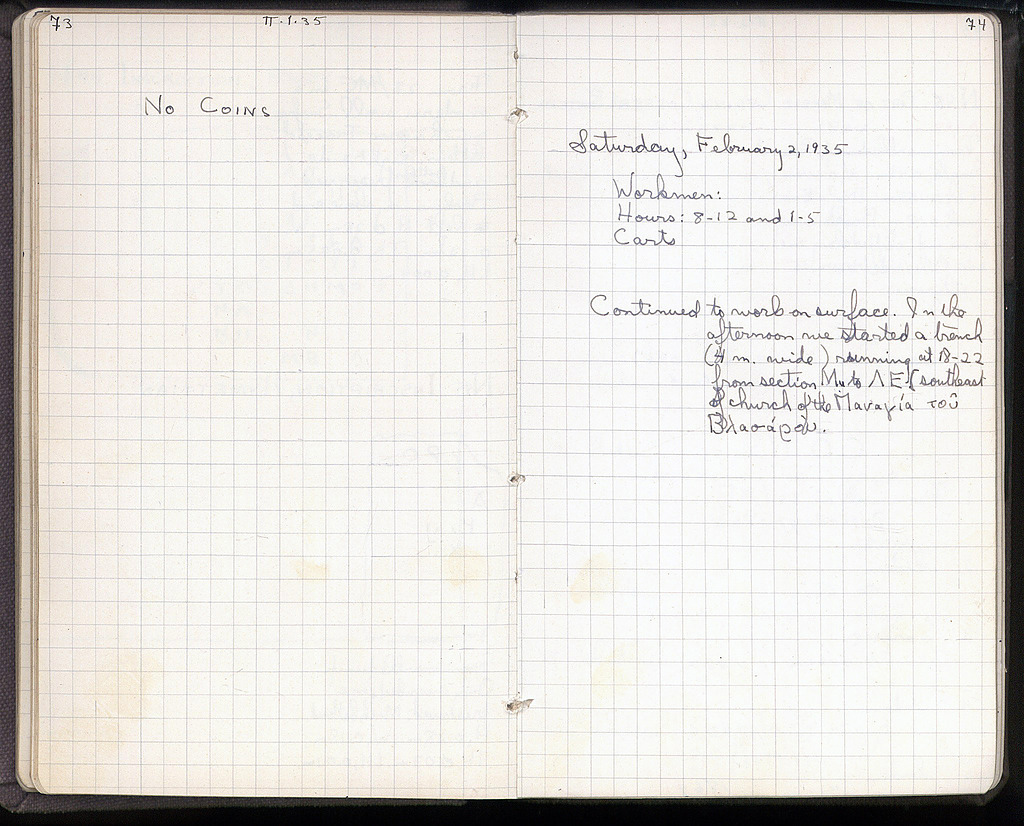 73
II·1·35
No Coins
74
Saturday, February 2, 1935
Workmen:
Hours: 8-12 and 1-5
Carts
Continued to work on surface. In the
afternoon we started a trench
(4 m. wide) running at 18-22
from section Mu to ΛΕ southeast
of church of the Παναγία τοῦ
Βλασάρου.